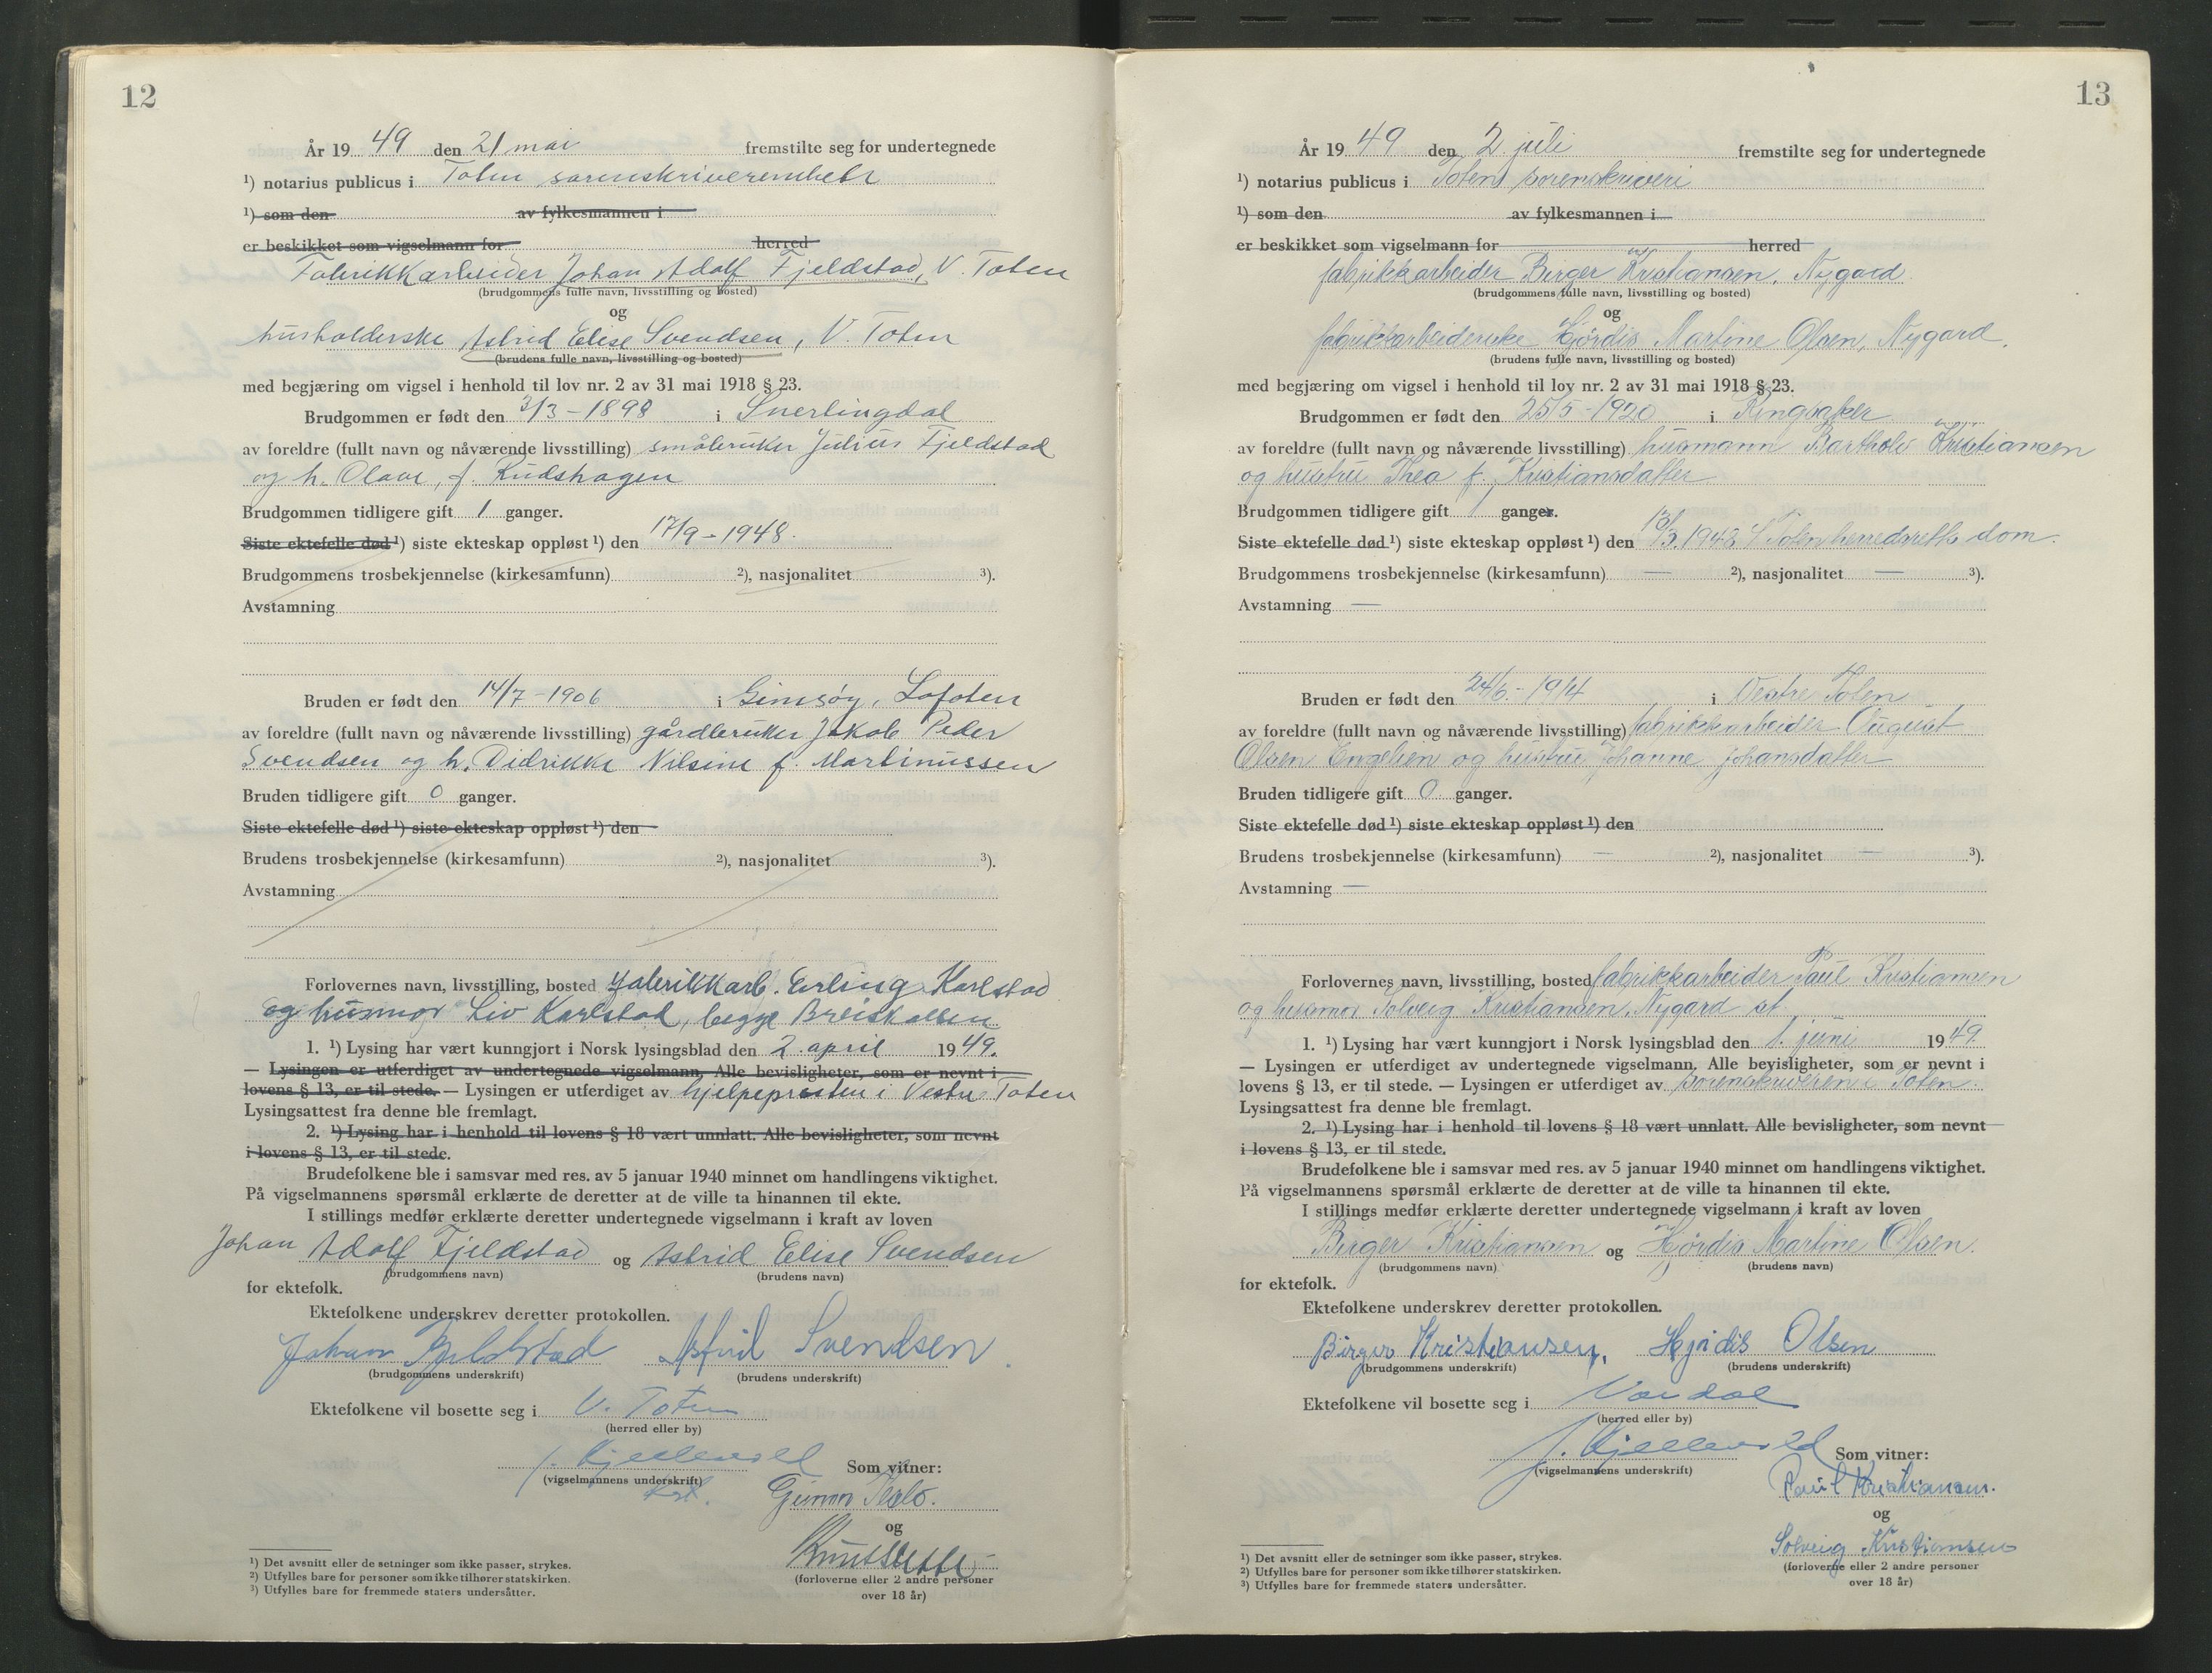 12
År 19 49 den 21 mai fremstilte seg for undertegnede
¹) notarius publicus i Toten sorenskriverembete
¹) som den av fylkesmannen i
er beskikket som vigselmann for herred
Fabrikkarbeider Johan Adolf Fjeldstad, V. Toten
(brudgommens fulle navn, livsstilling og bosted)
og
husholderske Astrid Elise Svendsen, V. Toten
(brudens fulle navn, livsstilling og bosted)
med begjæring om vigsel i henhold til lov nr. 2 av 31 mai 1918 § 23.
Brudgommen er født den 3/3 - 1898 i Snertingdal
av foreldre (fullt navn og nåværende livsstilling) småbruker Julius Fjeldstad
og h. Olave, f. Rudshagen
Brudgommen tidligere gift 1 ganger.
Siste ektefelle død ¹) siste ekteskap oppløst ¹) den 17/9 - 1948.
Brudgommens trosbekjennelse (kirkesamfunn) ²), nasjonalitet ³).
Avstamning
Bruden er født den 14/7 - 1906 i Gimsøy, Lofoten
av foreldre (fullt navn og nåværende livsstilling) gårdbruker Jakob Peder
Svendsen og h. Didrikke Nilsine f. Martinussen
Bruden tidligere gift 0 ganger.
Siste ektefelle død ¹) siste ekteskap oppløst ¹) den
Brudens trosbekjennelse (kirkesamfunn) ²), nasjonalitet ³).
Avstamning
Forlovernes navn, livsstilling, bosted fabrikkarb. Erling Karlstad
og husmor Liv Karlstad, begge Breiskallen
1. ¹) Lysing har vært kunngjort i Norsk lysingsblad den 2. april 1949.
— Lysingen er utferdiget av undertegnede vigselmann, Alle bevisligheter, som er nevnt i
lovens § 13, er til stede. — Lysingen er utferdiget av hjelpepresten i Vestre Toten
Lysingsattest fra denne ble fremlagt.
2. ¹) Lysing har i henhold til lovens § 18 vært unnlatt. Alle bevisligheter, som nevnt
i lovens § 13, er til stede.
Brudefolkene ble i samsvar med res. av 5 januar 1940 minnet om handlingens viktighet.
På vigselmannens spørsmål erklærte de deretter at de ville ta hinannen til ekte.
I stillings medfør erklærte deretter undertegnede vigselmann i kraft av loven
Johan Adolf Fjeldstad og Astrid Elise Svendsen
(brudgommens navn) (brudens navn)
for ektefolk.
Ektefolkene underskrev deretter protokollen.
Johan Fjeldstad Astrid Svendsen
(brudgommens underskrift) (brudens underskrift)
Ektefolkene vil bosette seg i V. Toten
(herred eller by)
J. Kjellevold Som vitner:
(vigselmannens underskrift)
Gunnar
og
(forloverne eller 2 andre personer
over 18 år)
¹) Det avsnitt eller de setninger som ikke passer, strykes.
²) Utfylles bare for personer som ikke tilhører statskirken.
³) Utfylles bare for fremmede staters undersåtter.
13
År 19 49 den 2 juli fremstilte seg for undertegnede
¹) notarius publicus i Toten sorenskriveri
¹) som den av fylkesmannen i
er beskikket som vigselmann for herred
fabrikkarbeider Birger Kristiansen, Nygard
(brudgommens fulle navn, livsstilling og bosted)
og
fabrikkarbeiderske Hjørdis Martine Olsen, Nygard.
(brudens fulle navn, livsstilling og bosted)
med begjæring om vigsel i henhold til lov nr. 2 av 31 mai 1918 § 23.
Brudgommen er født den 25/5 - 1920 i Ringsaker
av foreldre (fullt navn og nåværende livsstilling) husmann Barthold Kristiansen
og hustru Thea f. Kristiansdatter
Brudgommen tidligere gift 1 ganger.
Siste ektefelle død ¹) siste ekteskap oppløst ¹) den 13/3.1948 v/ Toten herredsretts dom.
Brudgommens trosbekjennelse (kirkesamfunn) — ²), nasjonalitet — ³).
Avstamning —
Bruden er født den 24/6. - 1914 i Vestre Toten
av foreldre (fullt navn og nåværende livsstilling) fabrikkarbeider August
Olsen Engelien og hustru Johanne Johansdatter
Bruden tidligere gift 0 ganger.
Siste ektefelle død ¹) siste ekteskap oppløst ¹) den
Brudens trosbekjennelse (kirkesamfunn) — ²), nasjonalitet — ³).
Avstamning —
Forlovernes navn, livsstilling, bosted fabrikkarbeider Paul Kristiansen
og husmor Solveig Kristiansen, Nygard st.
1. ¹) Lysing har vært kunngjort i Norsk lysingsblad den 1. juni 1949.
— Lysingen er utferdiget av undertegnede vigselmann. Alle bevisligheter, som er nevnt i
lovens § 13, er til stede. — Lysingen er utferdiget av sorenskriveren i Toten.
Lysingsattest fra denne ble fremlagt.
2. ¹) Lysing har i henhold til lovens § 18 vært unnlatt. Alle bevisligheter, som nevnt
i lovens § 13, er til stede.
Brudefolkene ble i samsvar med res. av 5 januar 1940 minnet om handlingens viktighet.
På vigselmannens spørsmål erklærte de deretter at de ville ta hinannen til ekte.
I stillings medfør erklærte deretter undertegnede vigselmann i kraft av loven
Birger Kristiansen og Hjørdis Martine Olsen.
(brudgommens navn) (brudens navn)
for ektefolk.
Ektefolkene underskrev deretter protokollen.
Birger Kristiansen, Hjørdis Olsen
(brudgommens underskrift) (brudens underskrift)
Ektefolkene vil bosette seg i Vardal
(herred eller by)
J. Kjellevold Som vitner:
(vigselmannens underskrift)
Paul Kristiansen.
og
Solveig Kristiansen
(forloverne eller 2 andre personer
over 18 år)
¹) Det avsnitt eller de setninger som ikke passer, strykes.
²) Utfylles bare for personer som ikke tilhører statskirken.
³) Utfylles bare for fremmede staters undersåtter.